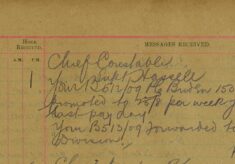 HOUR RECEIVED.
MESSAGES RECEIVED.
A.M. P.M.
1
Chief Constable
Supt Hassell
Your B512/09 PC Burden 150
promoted to 25/8 per week
last pay day
Your B513/09 forwarded to
E Division